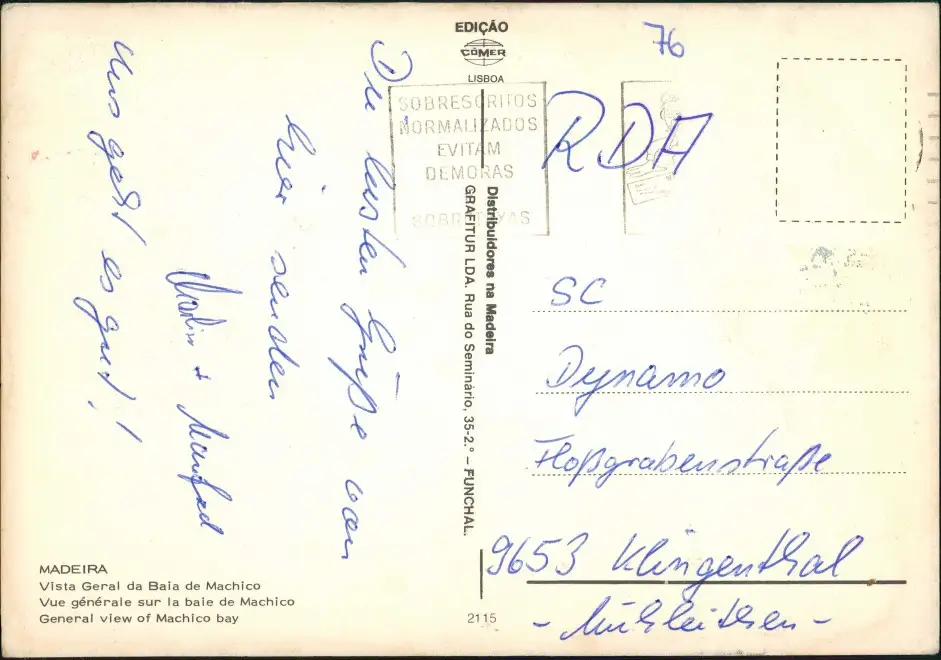 EDIÇÃO
COMER
LISBOA
76
SOBRESCRITOS
NORMALIZADOS
EVITAM
DEMORAS
RDA
Die besten Grüße von
hier senden
Martin + Manfred
Uns geht es gut!
Distribuidores na Madeira
GRAFITUR LDA. Rua do Seminário, 35-2.° – FUNCHAL.
SC
Dynamo
Floßgrabenstraße
9653 Klingenthal
- Mühlleithen -
MADEIRA
Vista Geral da Baia de Machico
Vue générale sur la baie de Machico
General view of Machico bay
2115